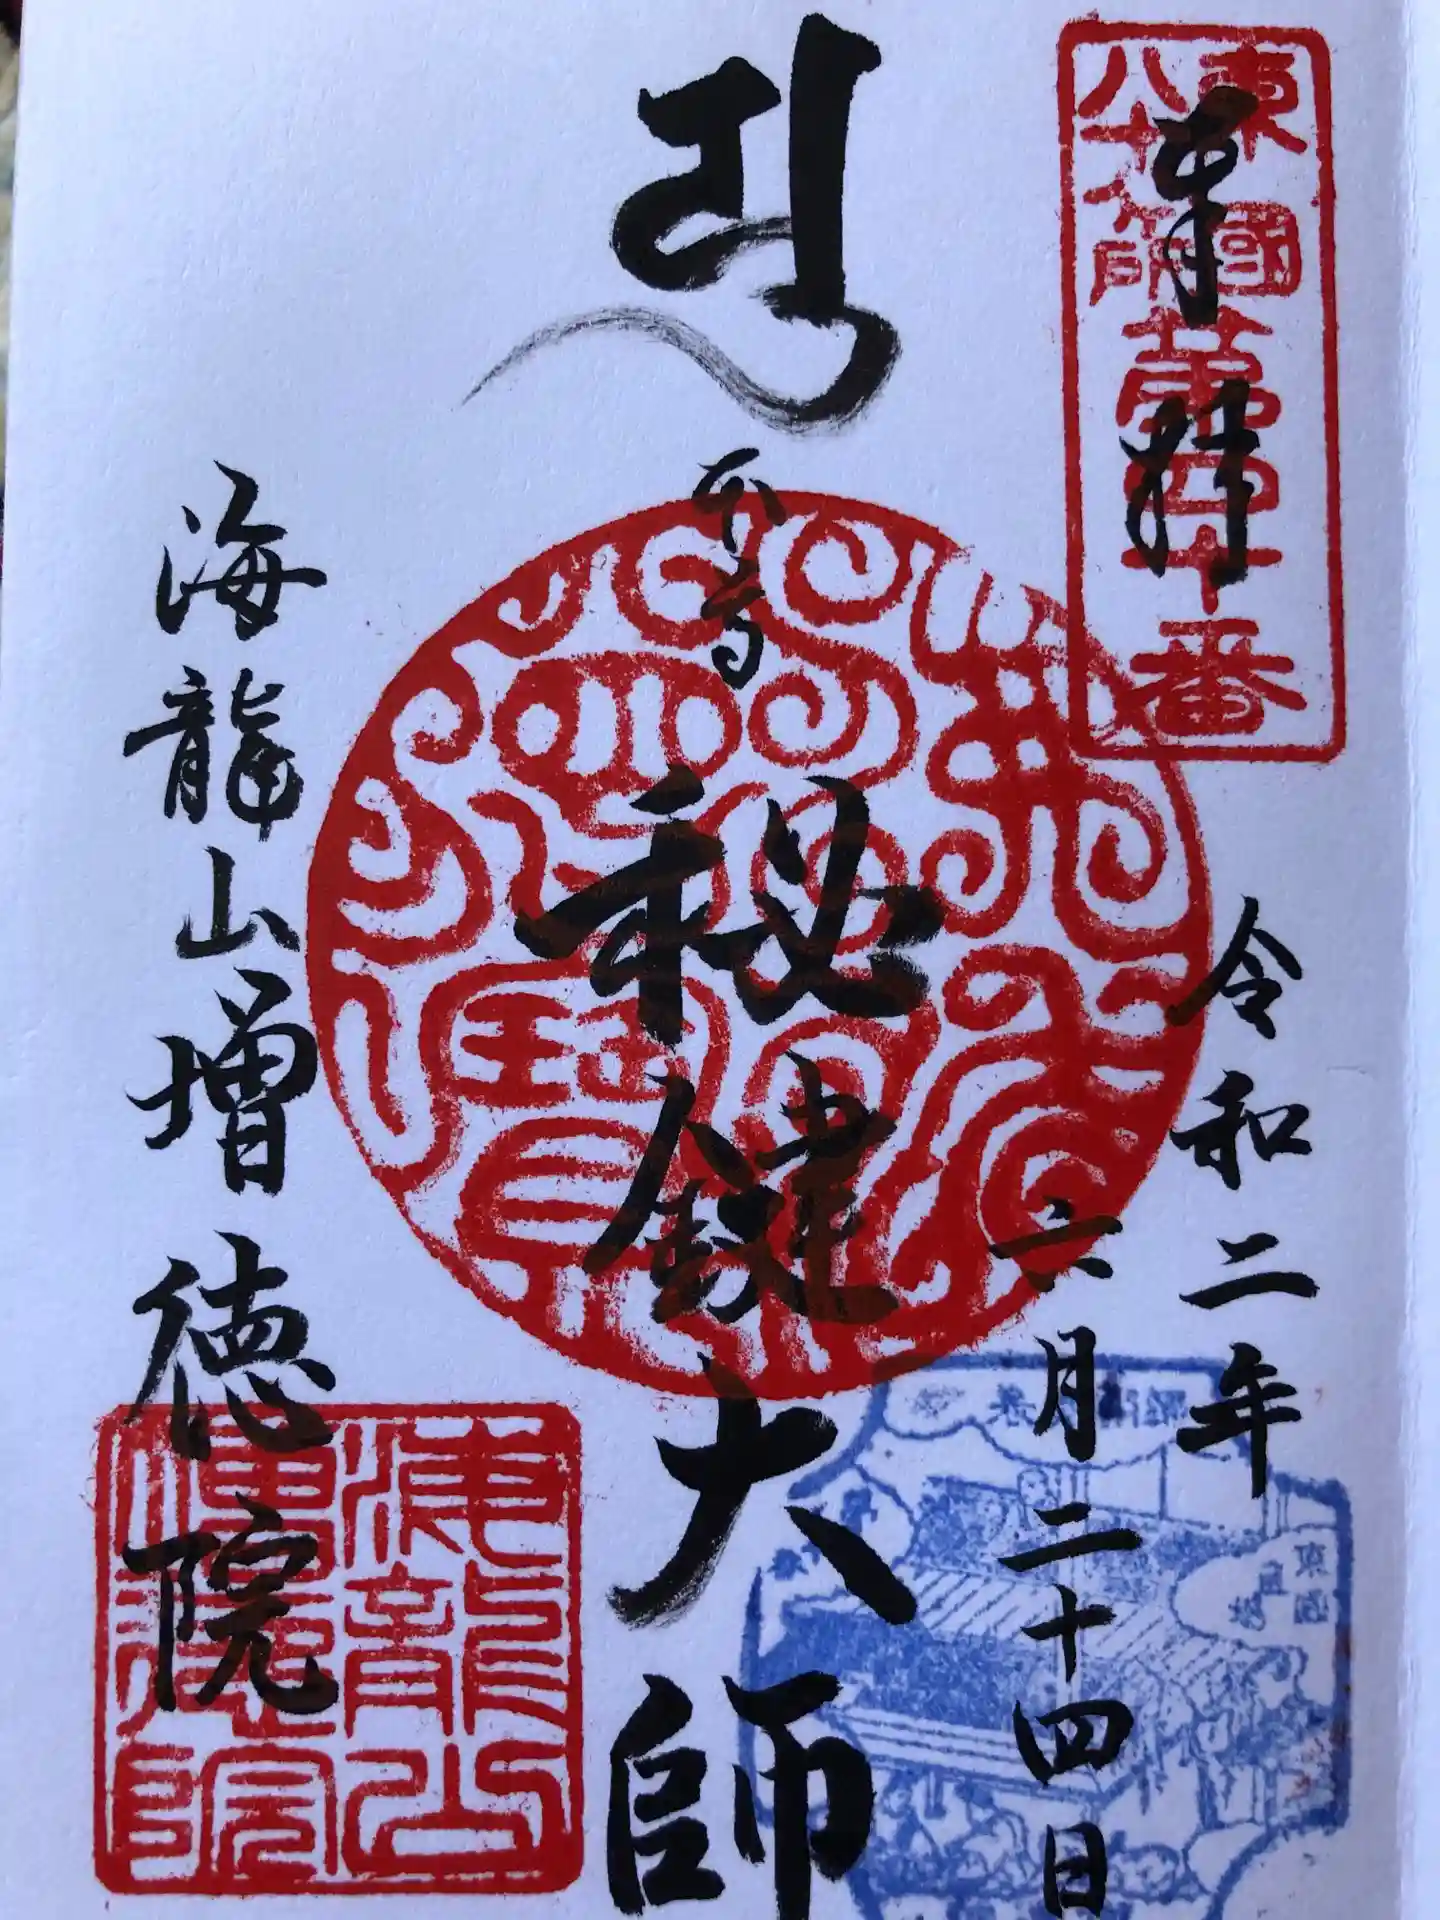 東國
八十八箇所
第四十番
奉拝
令和二年
六月二十四日
本尊
秘鍵大師
海龍山増徳院
海龍山
増徳院